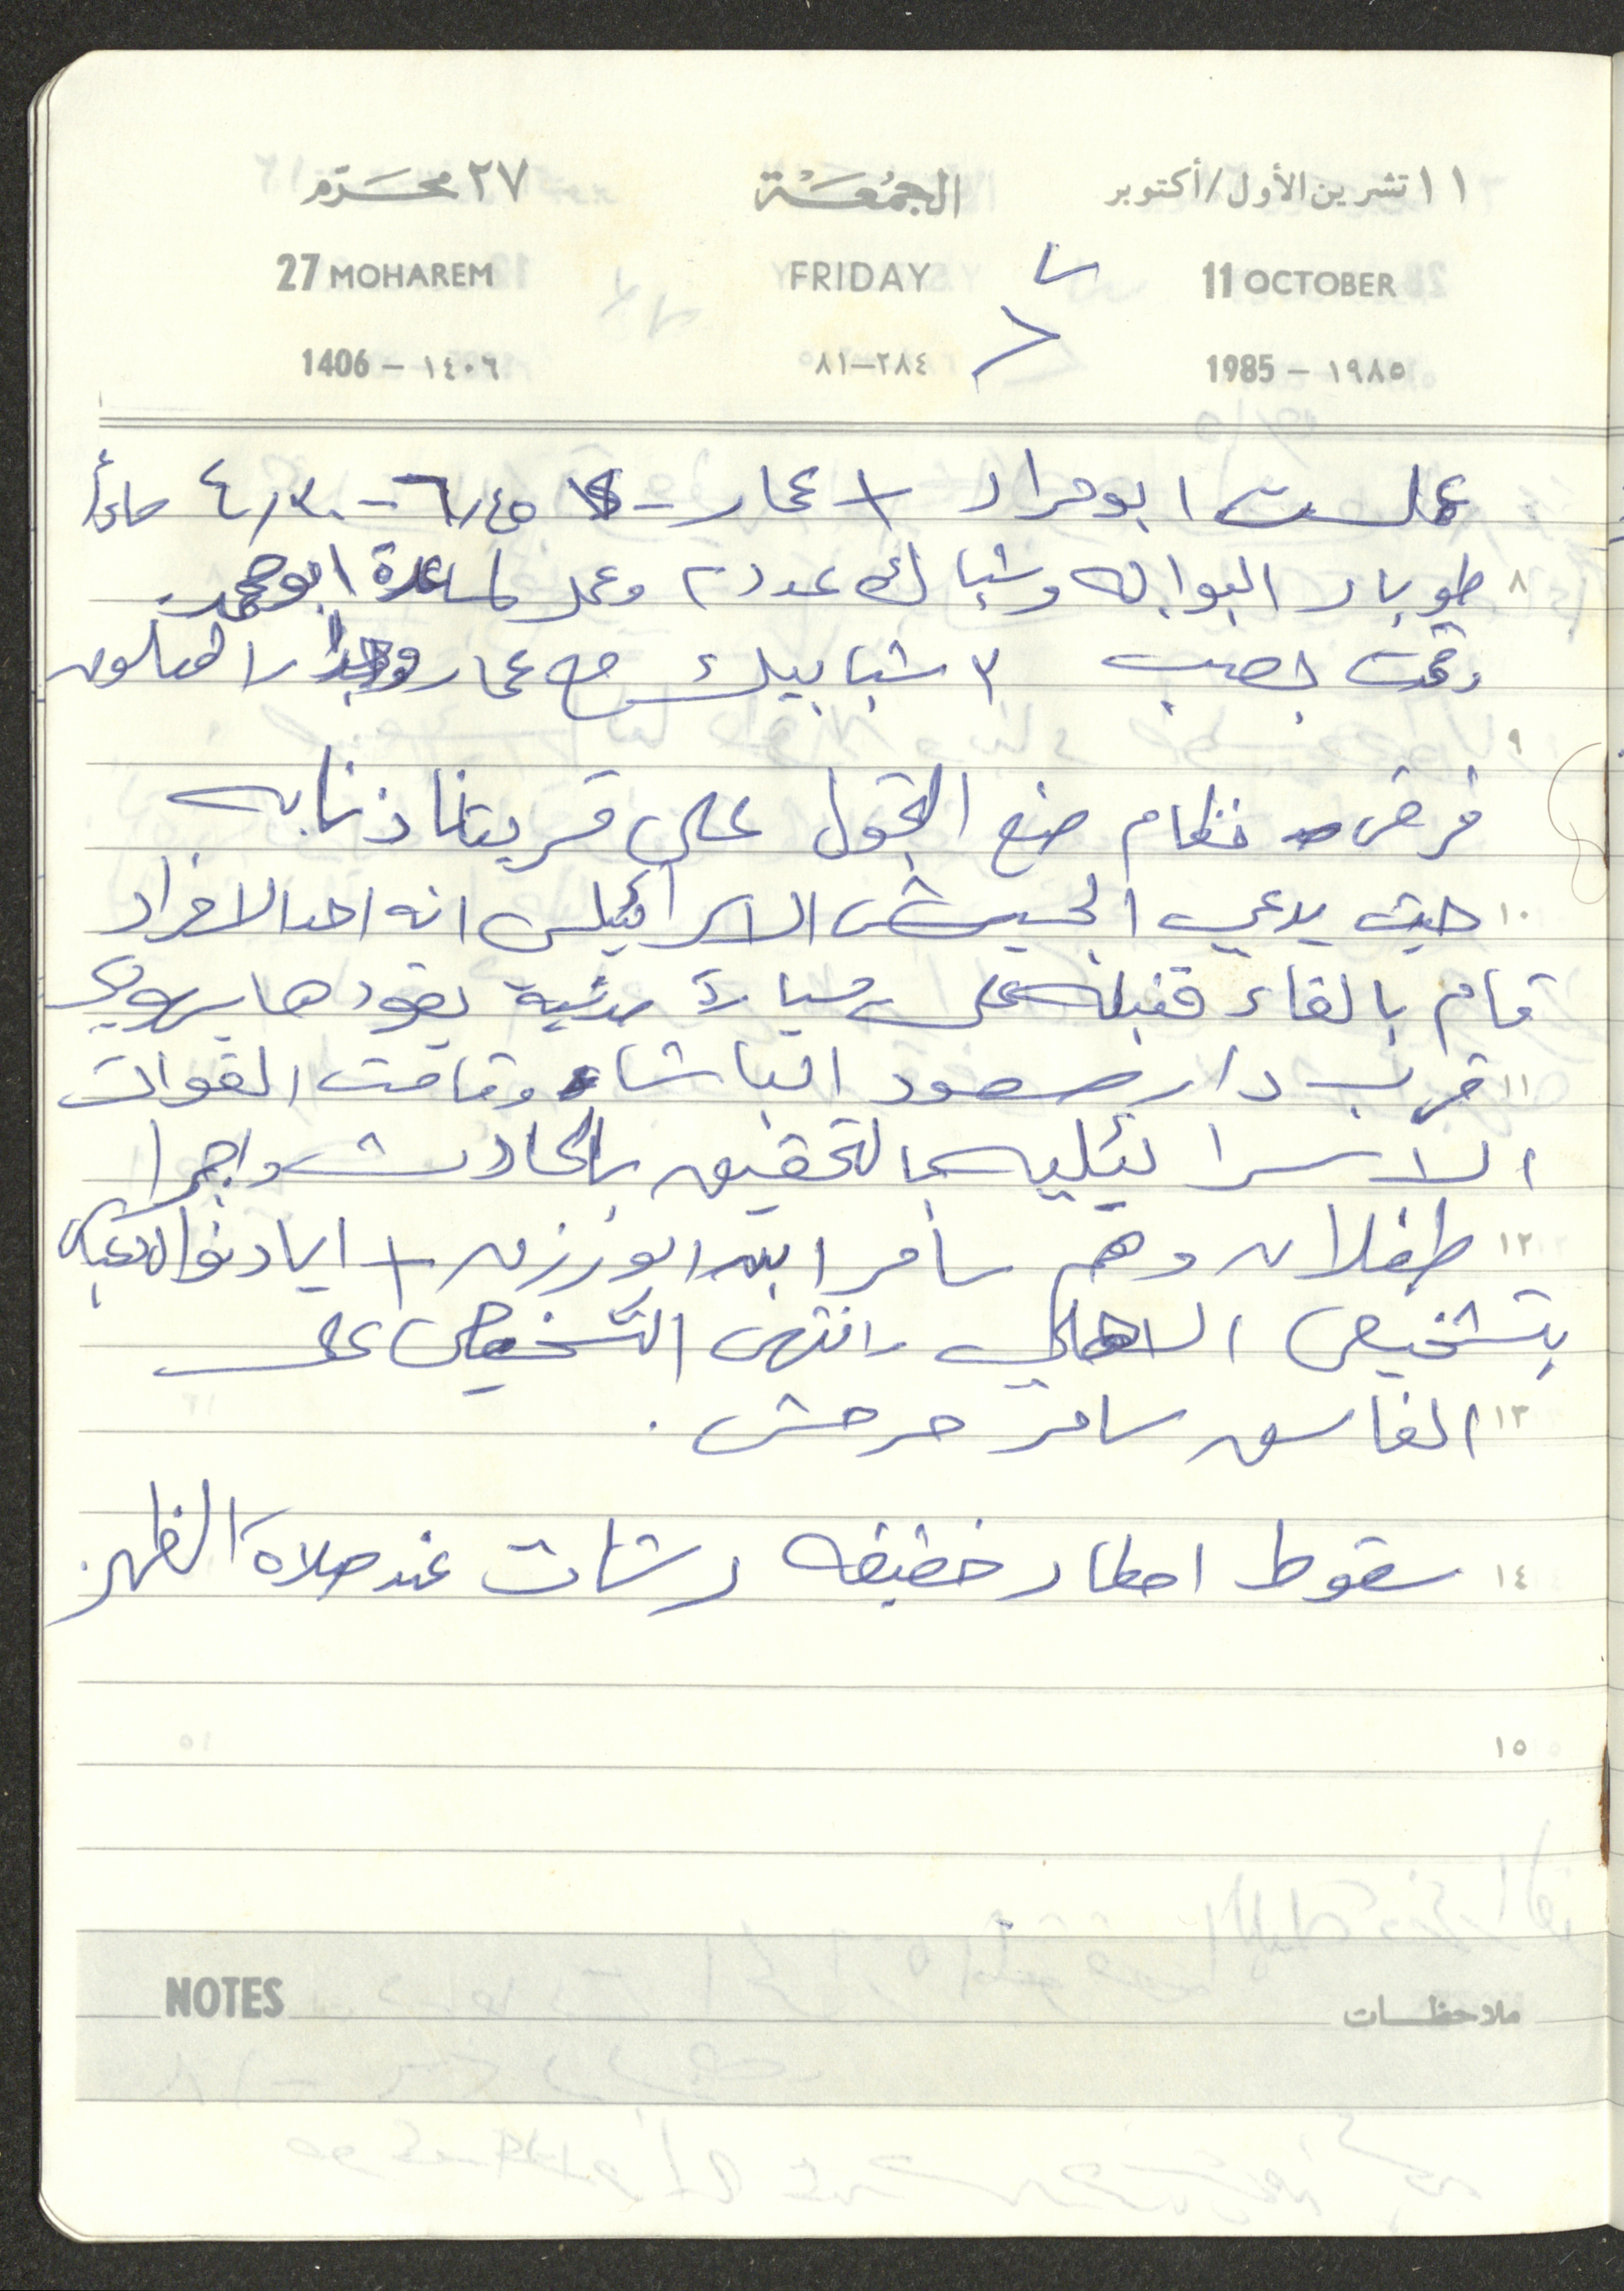 ١١ تشرين الأول/أكتوبر الجمعة ٢٧ محرم
11 OCTOBER FRIDAY 27 MOHAREM
1985 - ١٩٨٥ ٢٨٤-٨١ 1406 - ١٤٠٦
عملت ابو مراد + عمار - ٦/٤٥ - ٤/٣٠ مساءً
٨ طوبار البوابه وشباك عدد ٢ وعمل لمساعدة ابو محمد
وقمت بصب ٣ شبابيك مع عمار
٩
فرض نظام منع التجول على قريتنا ذنابه
١٠ حيث يدعي الجيش الاسرائيلي انه احد الافراد
قام بالقاء قنبله على سيارة مدنية يقودها يهودي
١١ قرب دار مسعود الباشا وقامت القوات
الاسرائيليه بالتحقيق بالحادث واجرا
١٢ طفلان وهم سامر ابو رزق + اياد
بتشخيص الاهالي وانتهى التشخيص على
١٣ الفاسق سامر مرعش .
١٤ سقوط امطار خفيفه رشات عند صلاة الظهر.
١٥
NOTES ملاحظات